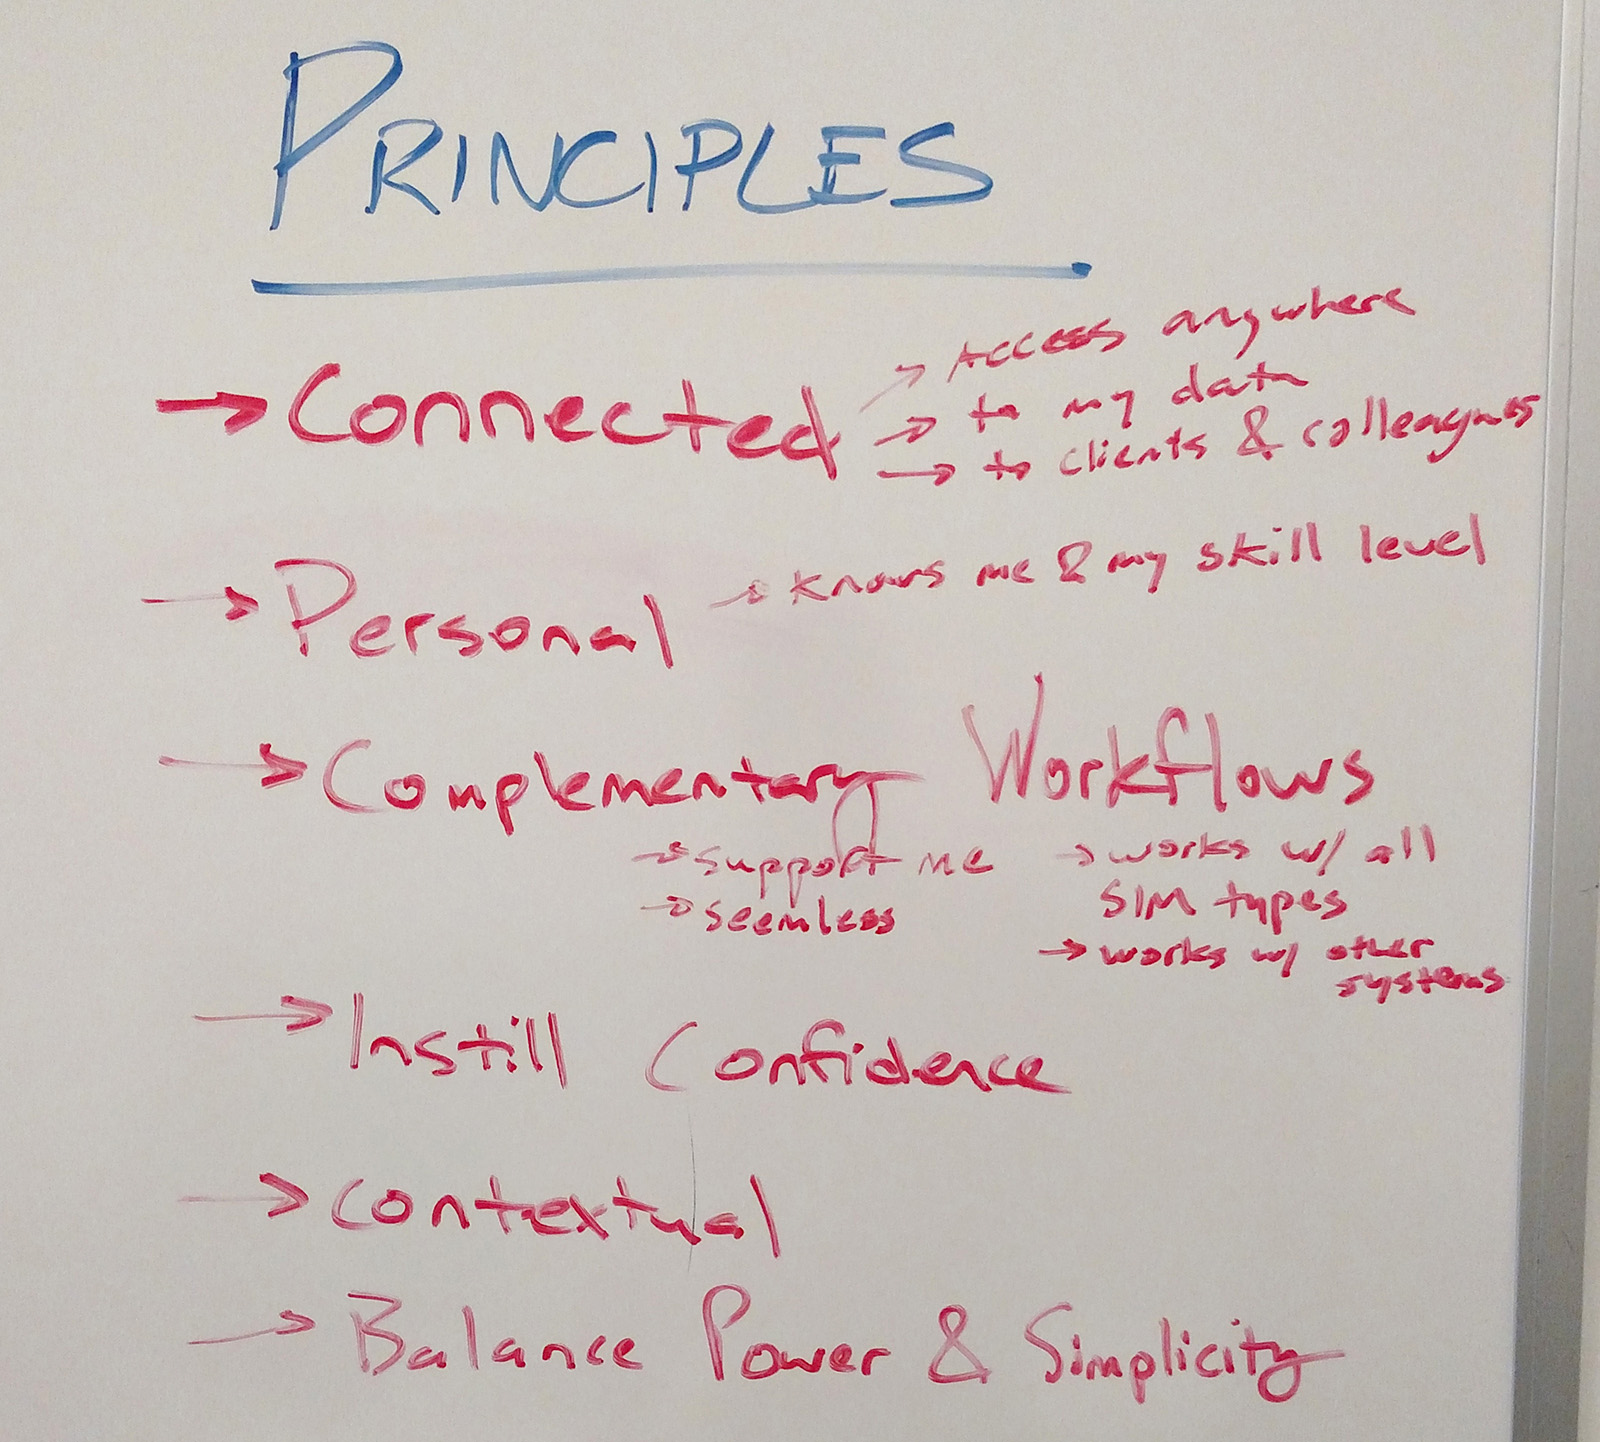 PRINCIPLES
→ Connected
→ Access anywhere
→ to my data
→ to clients & colleagues
→ Personal → knows me & my skill level
→ Complementary Workflows
→ support me
→ seemless
→ works w/ all
SIM types
→ works w/ other
systems
→ Instill Confidence
→ Contextual
→ Balance Power & Simplicity